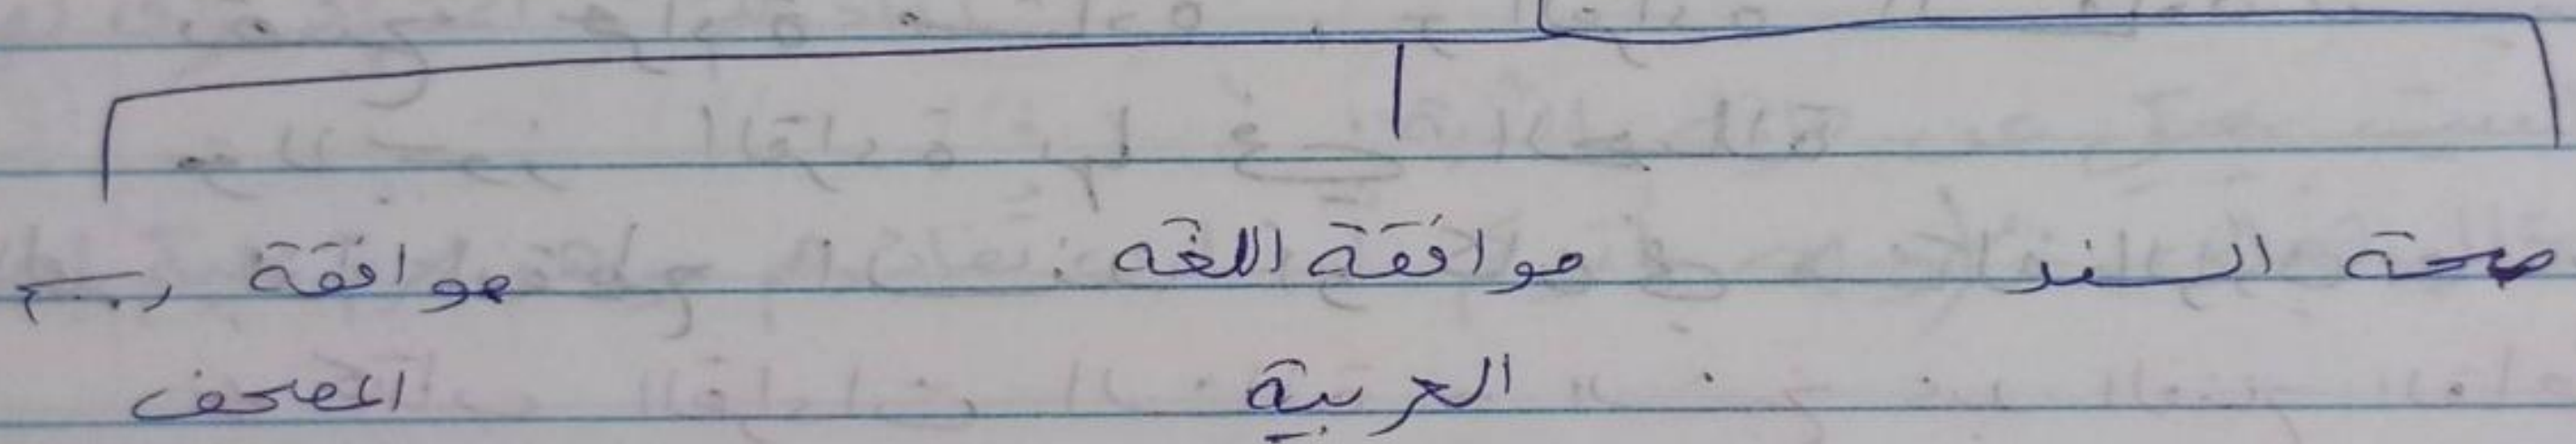 صحة السند
موافقة اللغه
العربية
موافقة رسم
المصحف